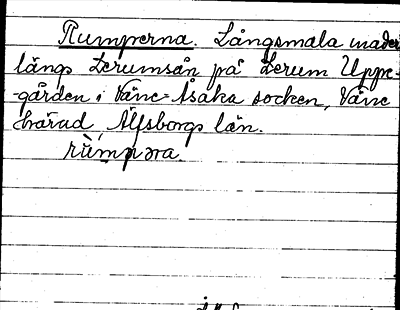 Rumperna. Långsmala mader
längs Lerumsån på Lerum Uppe-
-gården i Väne-Åsaka socken, Väne
härad, Älfsborgs län.
rùmpəṛa.